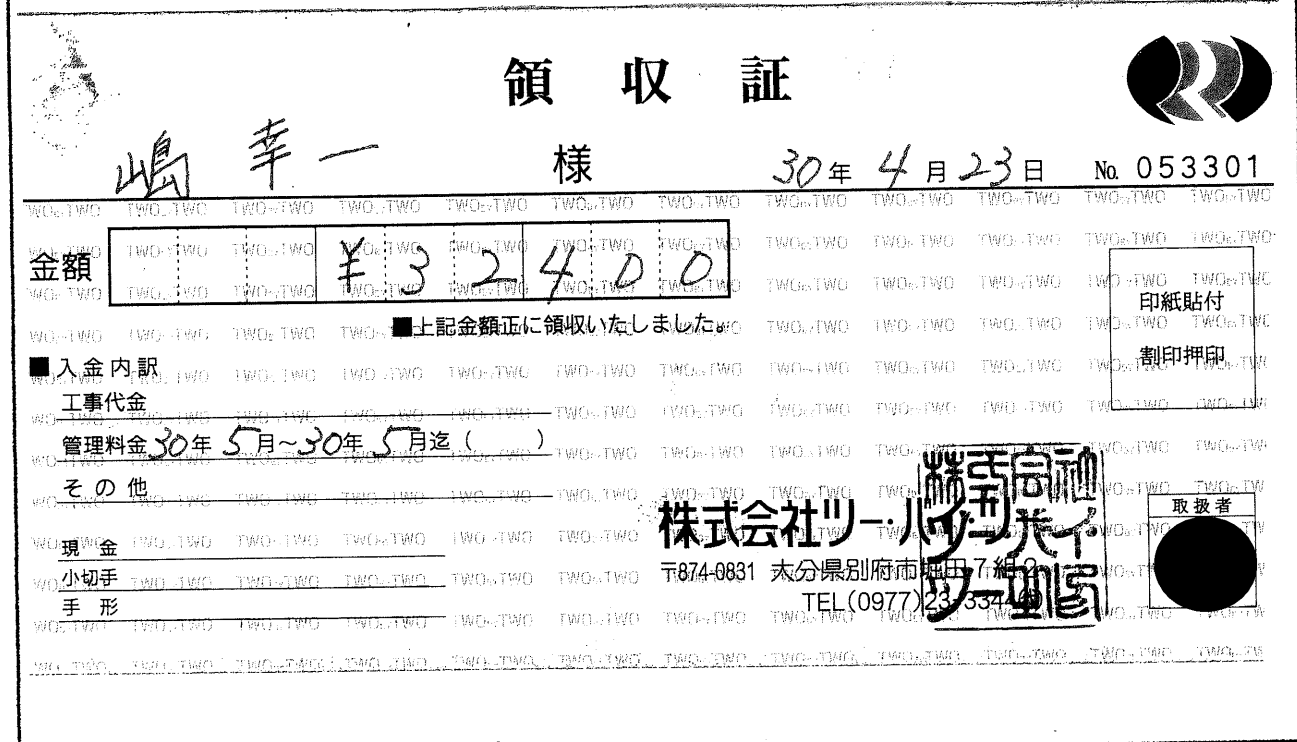 領収証
嶋 幸一 様 30年 4月 23日 No. 053301
金額 ¥32400
■上記金額正に領収いたしました。
印紙貼付
割印押印
■入金内訳
工事代金
管理料金 30年 5月〜30年 5月迄 ( )
その他
取扱者
株式会社ツー・
現金
〒874-0831 大分県別府市堀田7組2
小切手
TEL(0977)23-334
手形